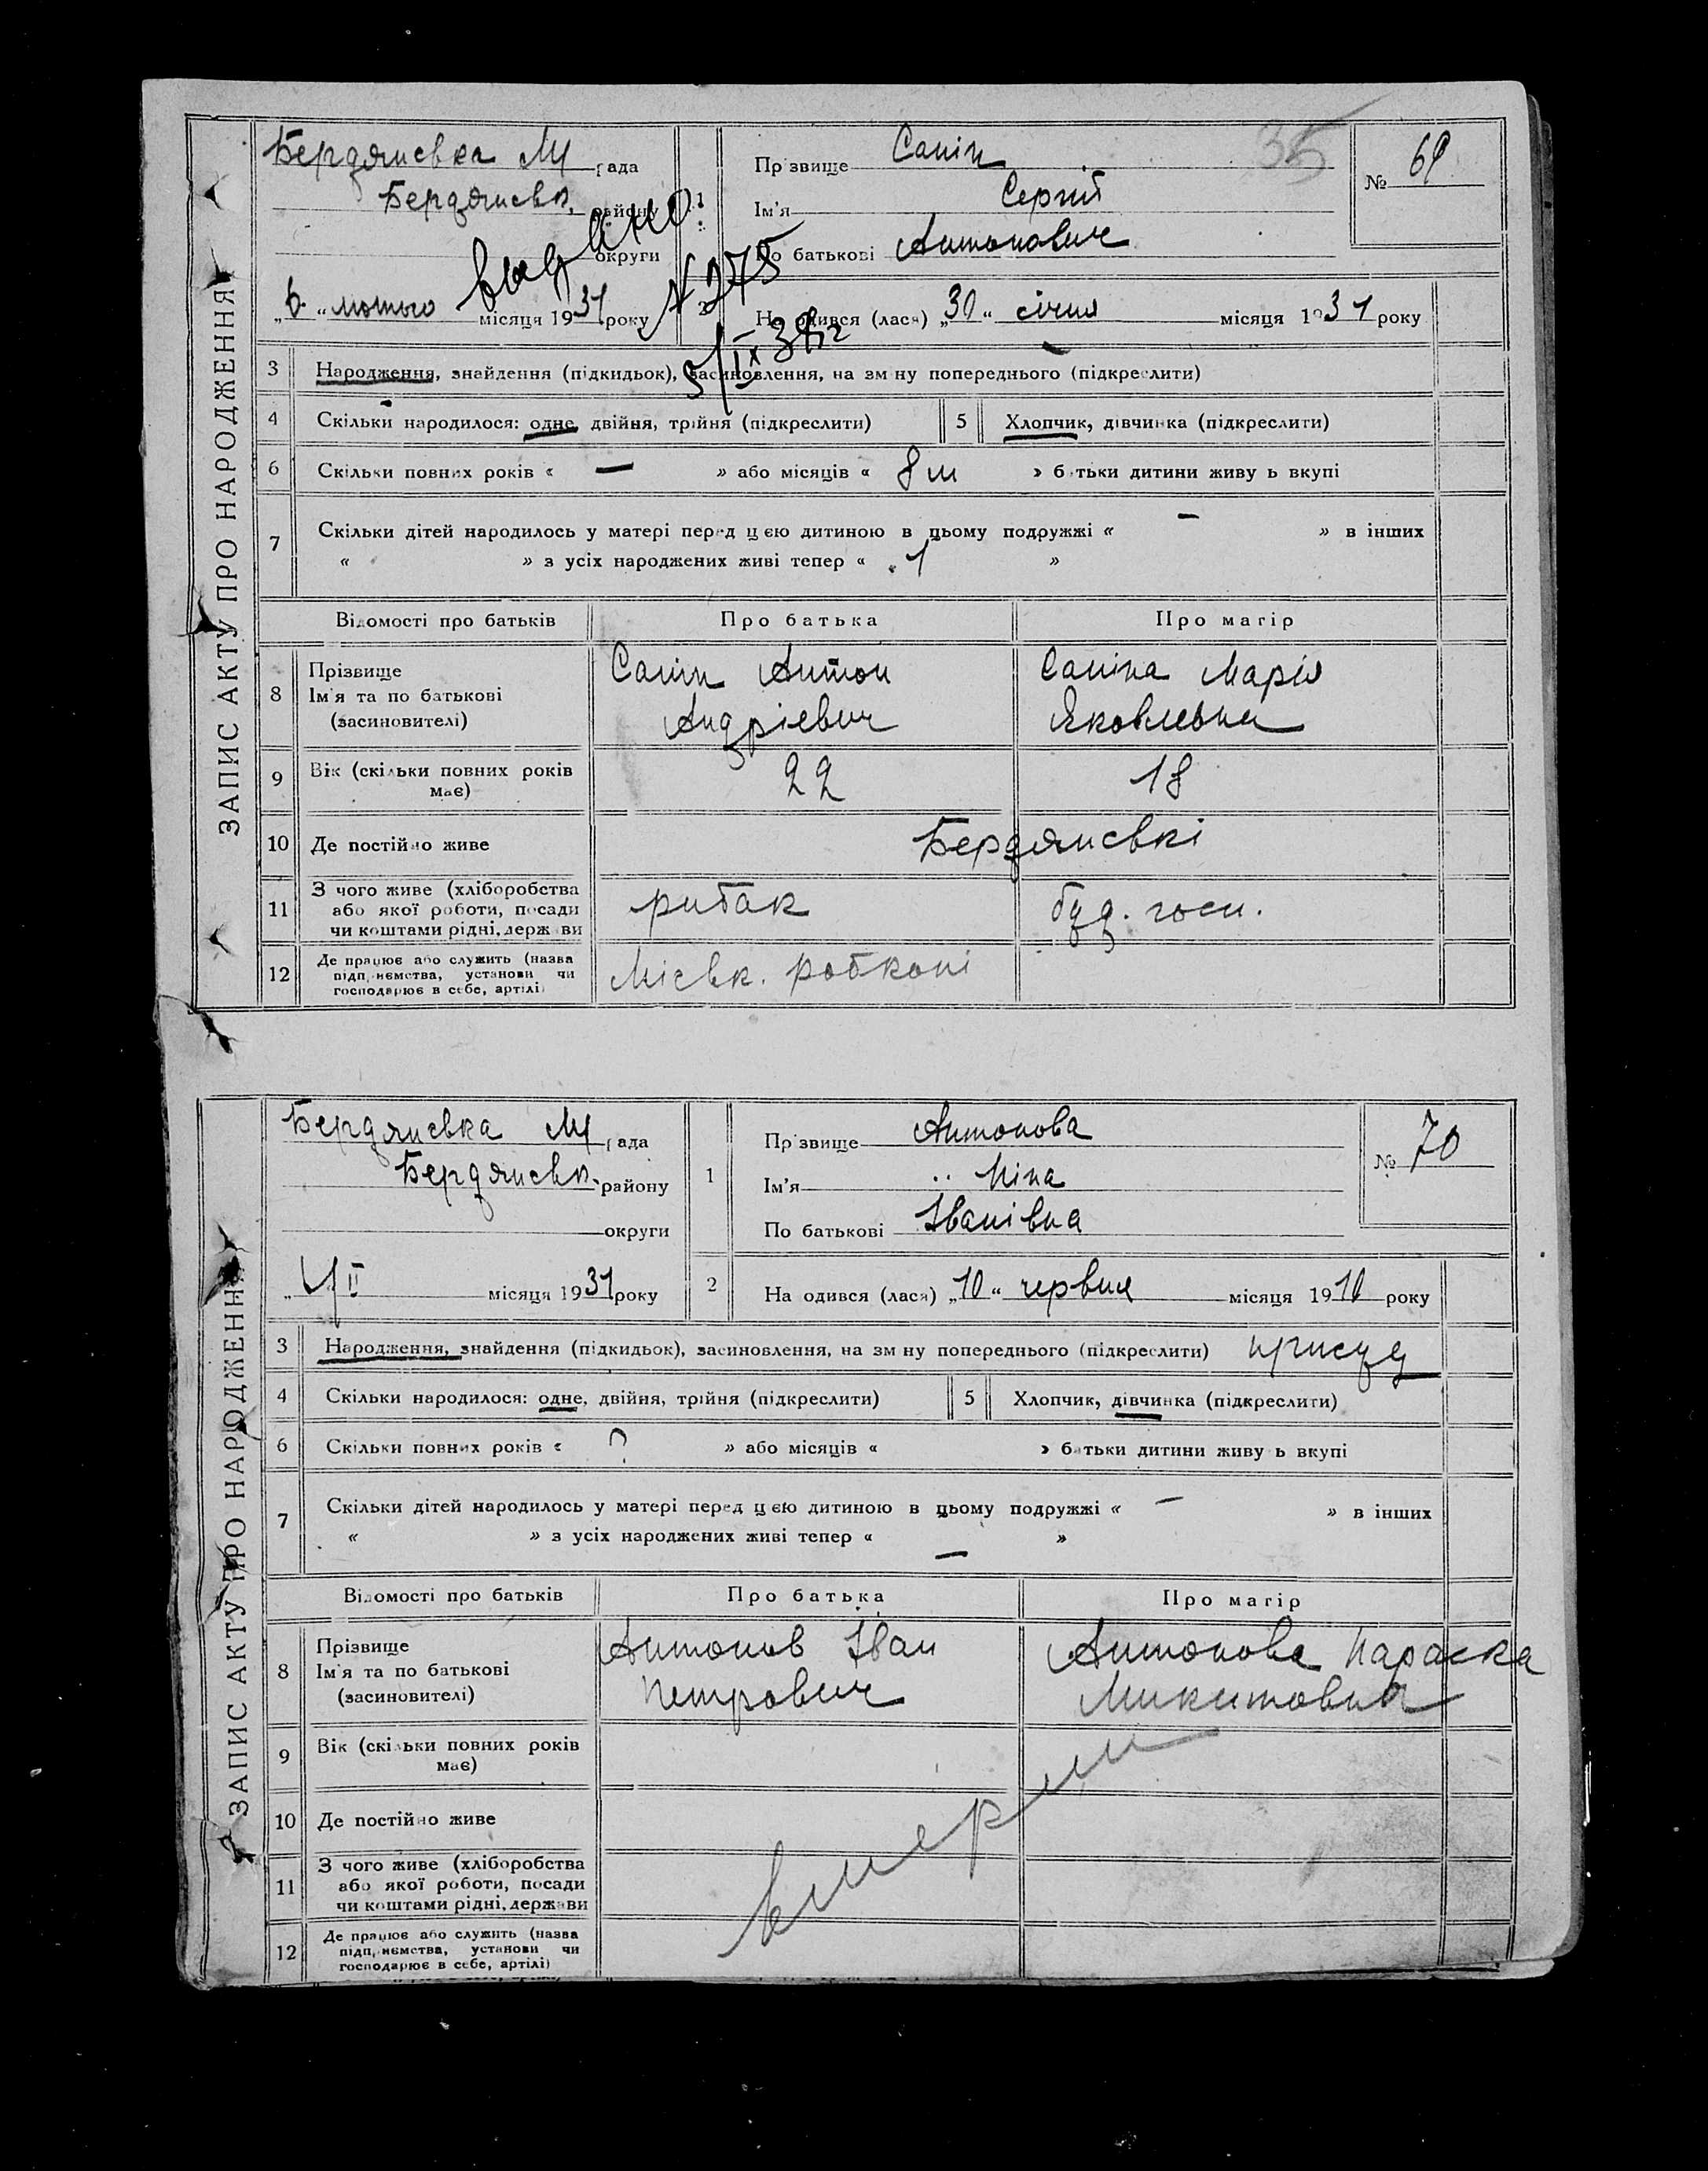 ЗАПИС АКТУ ПРО НАРОДЖЕННЯ
35
Бердянська М рада
Бердянськ. району
округи
„6.“ лютого місяця 1931 року
видано
№ 275
5/IX 38 г
1
Прізвище Санін
Ім'я Сергій
По батькові Антонович
№ 69
2 Народився (лася) „30“ січня місяця 1931 року
3 Народження, знайдення (підкидьок), засиновлення, на зміну попереднього (підкреслити)
4 Скільки народилося: одне, двійня, трійня (підкреслити) 5 Хлопчик, дівчинка (підкреслити)
6 Скільки повних років « — » або місяців « 8 м » батьки дитини живуть вкупі
7 Скільки дітей народилось у матері перед цією дитиною в цьому подружжі « — » в інших
« » з усіх народжених живі тепер « 1 »
Відомості про батьків Про батька Про матір
8 Прізвище Ім'я та по батькові (засиновителі)
Санін Антон Андрієвич
Саніна Марія Яковлевна
9 Вік (скільки повних років має) 22 18
10 Де постійно живе Бердянські
11 З чого живе (хліборобства або якої роботи, посади чи коштами рідні, держави
рибак буд. госп.
12 Де працює або служить (назва підприємства, установи чи господарює в себе, артілі)
Міськ. робкопі
ЗАПИС АКТУ ПРО НАРОДЖЕННЯ
Бердянська М рада
Бердянськ. району
округи
„ II місяця 1931 року
1
Прізвище Антонова
Ім'я Ніна
По батькові Іванівна
№ 70
2 Народився (лася) „10“ червня місяця 1910 року
3 Народження, знайдення (підкидьок), засиновлення, на зміну попереднього (підкреслити) присуд
4 Скільки народилося: одне, двійня, трійня (підкреслити) 5 Хлопчик, дівчинка (підкреслити)
6 Скільки повних років « ? » або місяців « » батьки дитини живуть вкупі
7 Скільки дітей народилось у матері перед цією дитиною в цьому подружжі « — » в інших
« » з усіх народжених живі тепер « — »
Відомості про батьків Про батька Про матір
8 Прізвище Ім'я та по батькові (засиновителі)
Антонов Іван Петрович
Антонова Параска Микитовна
9 Вік (скільки повних років має)
10 Де постійно живе
11 З чого живе (хліборобства або якої роботи, посади чи коштами рідні, держави
12 Де працює або служить (назва підприємства, установи чи господарює в себе, артілі)
вмерли